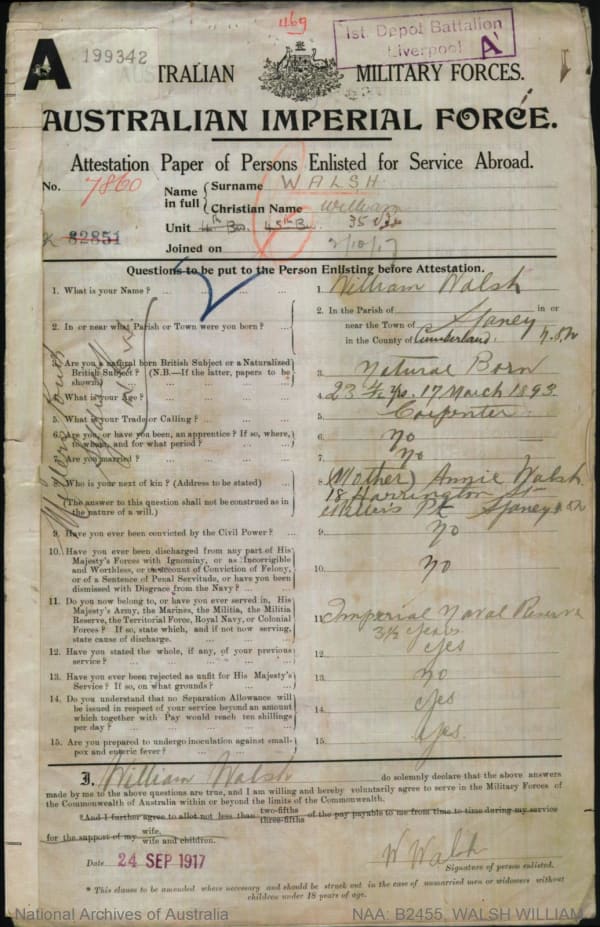 469
1st. Depot Battalion
Liverpool A
A
199342
AUSTRALIAN MILITARY FORCES.
AUSTRALIAN IMPERIAL FORCE.
Attestation Paper of Persons Enlisted for Service Abroad.
No. 7860
Name in full
Surname WALSH
Christian Name William
82851
Unit 45th Bn. 35
Joined on 2/10/17
Questions to be put to the Person Enlisting before Attestation.
1. What is your Name? ... 1. William Walsh
2. In or near what Parish or Town were you born? ... 2. In the Parish of in or
near the Town of Sydney
in the County of Cumberland. N.S.W
3. Are you a natural born British Subject or a Naturalized
British Subject? (N.B.—If the latter, papers to be
shown) ... 3. Natural Born
4. What is your Age? ... 4. 17 March 1893
5. What is your Trade or Calling? ... 5. Carpenter
6. Are you, or have you been, an apprentice? If so, where,
to whom, and for what period? ... 6. No
7. Are you married? ... 7. No
8. Who is your next of kin? (Address to be stated) ... 8. (Mother) Annie Walsh
18 Harrington St
(The answer to this question shall not be construed as in
the nature of a will.) Miller's Pt Sydney NSW
9. Have you ever been convicted by the Civil Power? ... 9. No
10. Have you ever been discharged from any part of His
Majesty's Forces with Ignominy, or as Incorrigible
and Worthless, or on account of Conviction of Felony,
or of a Sentence of Penal Servitude, or have you been
dismissed with Disgrace from the Navy? ... 10. No
11. Do you now belong to, or have you ever served in, His
Majesty's Army, the Marines, the Militia, the Militia
Reserve, the Territorial Force, Royal Navy, or Colonial
Forces? If so, state which, and if not now serving,
state cause of discharge. ... 11. Imperial Naval Reserve
3½ years
12. Have you stated the whole, if any, of your previous
service? ... 12. Yes
13. Have you ever been rejected as unfit for His Majesty's
Service? If so, on what grounds? ... 13. No
14. Do you understand that no Separation Allowance will
be issued in respect of your service beyond an amount
which together with Pay would reach ten shillings
per day? ... 14. Yes
15. Are you prepared to undergo inoculation against small-
pox and enteric fever? ... 15. Yes.
I, William Walsh do solemnly declare that the above answers
made by me to the above questions are true, and I am willing and hereby voluntarily agree to serve in the Military Forces of
the Commonwealth of Australia within or beyond the limits of the Commonwealth.
*And I further agree to allot not less than two-fifths three-fifths of the pay payable to me from time to time during my service
for the support of my wife. wife and children.
Date 24 SEP 1917
W Walsh
Signature of person enlisted.
* This clause to be amended where necessary and should be struck out in the case of unmarried men or widowers without
children under 18 years of age.
National Archives of Australia
NAA: B2455, WALSH WILLIAM